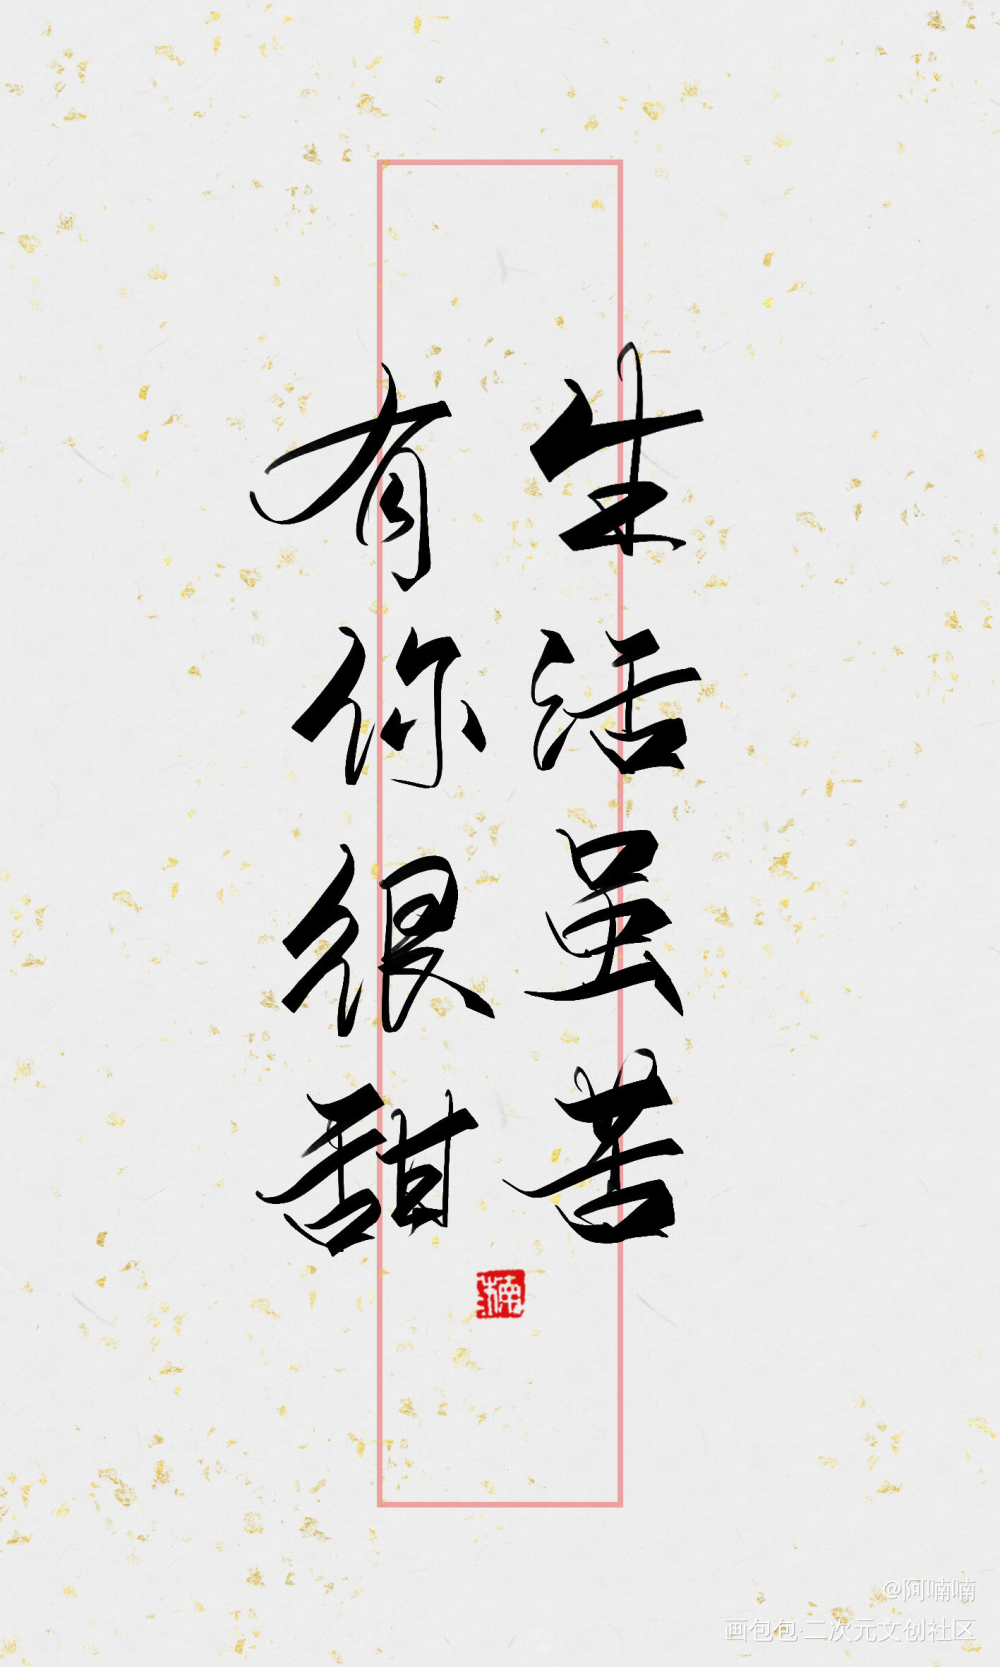 生活虽苦
有你很甜
楠
@阿喃喃
画包包·二次元文创社区